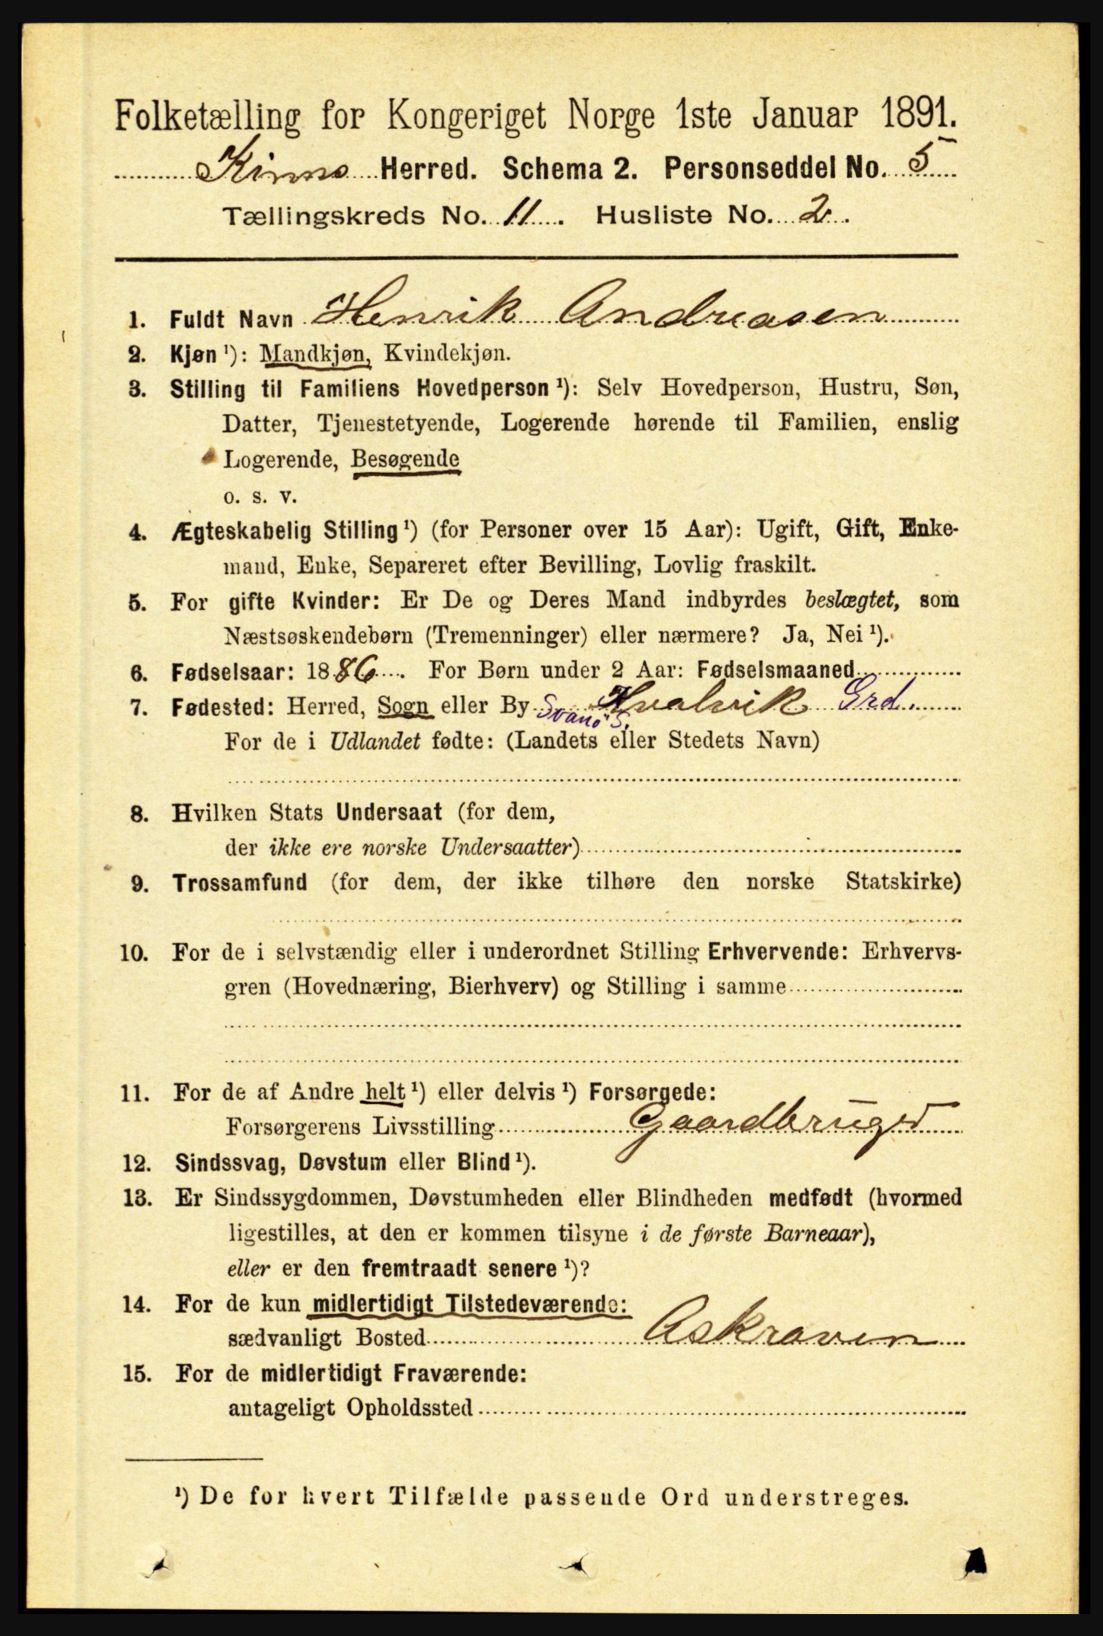 Folketælling for Kongeriget Norge 1ste Januar 1891.
Kinns Herred. Schema 2. Personseddel No. 5
Tællingskreds No. 11. Husliste No. 2.
1. Fuldt Navn Henrik Andreasen
2. Kjøn ¹): Mandkjøn, Kvindekjøn.
3. Stilling til Familiens Hovedperson ¹): Selv Hovedperson, Hustru, Søn,
Datter, Tjenestetyende, Logerende hørende til Familien, enslig
Logerende, Besøgende
o. s. v.
4. Ægteskabelig Stilling ¹) (for Personer over 15 Aar): Ugift, Gift, Enke-
mand, Enke, Separeret efter Bevilling, Lovlig fraskilt.
5. For gifte Kvinder: Er De og Deres Mand indbyrdes beslægtet, som
Næstsøskendebørn (Tremenninger) eller nærmere? Ja, Nei ¹).
6. Fødselsaar: 1886. For Børn under 2 Aar: Fødselsmaaned
7. Fødested: Herred, Sogn eller By Svanø S. Hvalvik Grd.
For de i Udlandet fødte: (Landets eller Stedets Navn)
8. Hvilken Stats Undersaat (for dem,
der ikke ere norske Undersaatter)
9. Trossamfund (for dem, der ikke tilhøre den norske Statskirke)
10. For de i selvstændig eller i underordnet Stilling Erhvervende: Erhvervs-
gren (Hovednæring, Bierhverv) og Stilling i samme
11. For de af Andre helt ¹) eller delvis ¹) Forsørgede:
Forsørgerens Livsstilling Gaardbruger
12. Sindssvag, Døvstum eller Blind ¹).
13. Er Sindssygdommen, Døvstumheden eller Blindheden medfødt (hvormed
ligestilles, at den er kommen tilsyne i de første Barneaar),
eller er den fremtraadt senere ¹)?
14. For de kun midlertidigt Tilstedeværende:
sædvanligt Bosted Askraven
15. For de midlertidigt Fraværende:
antageligt Opholdssted
¹) De for hvert Tilfælde passende Ord understreges.